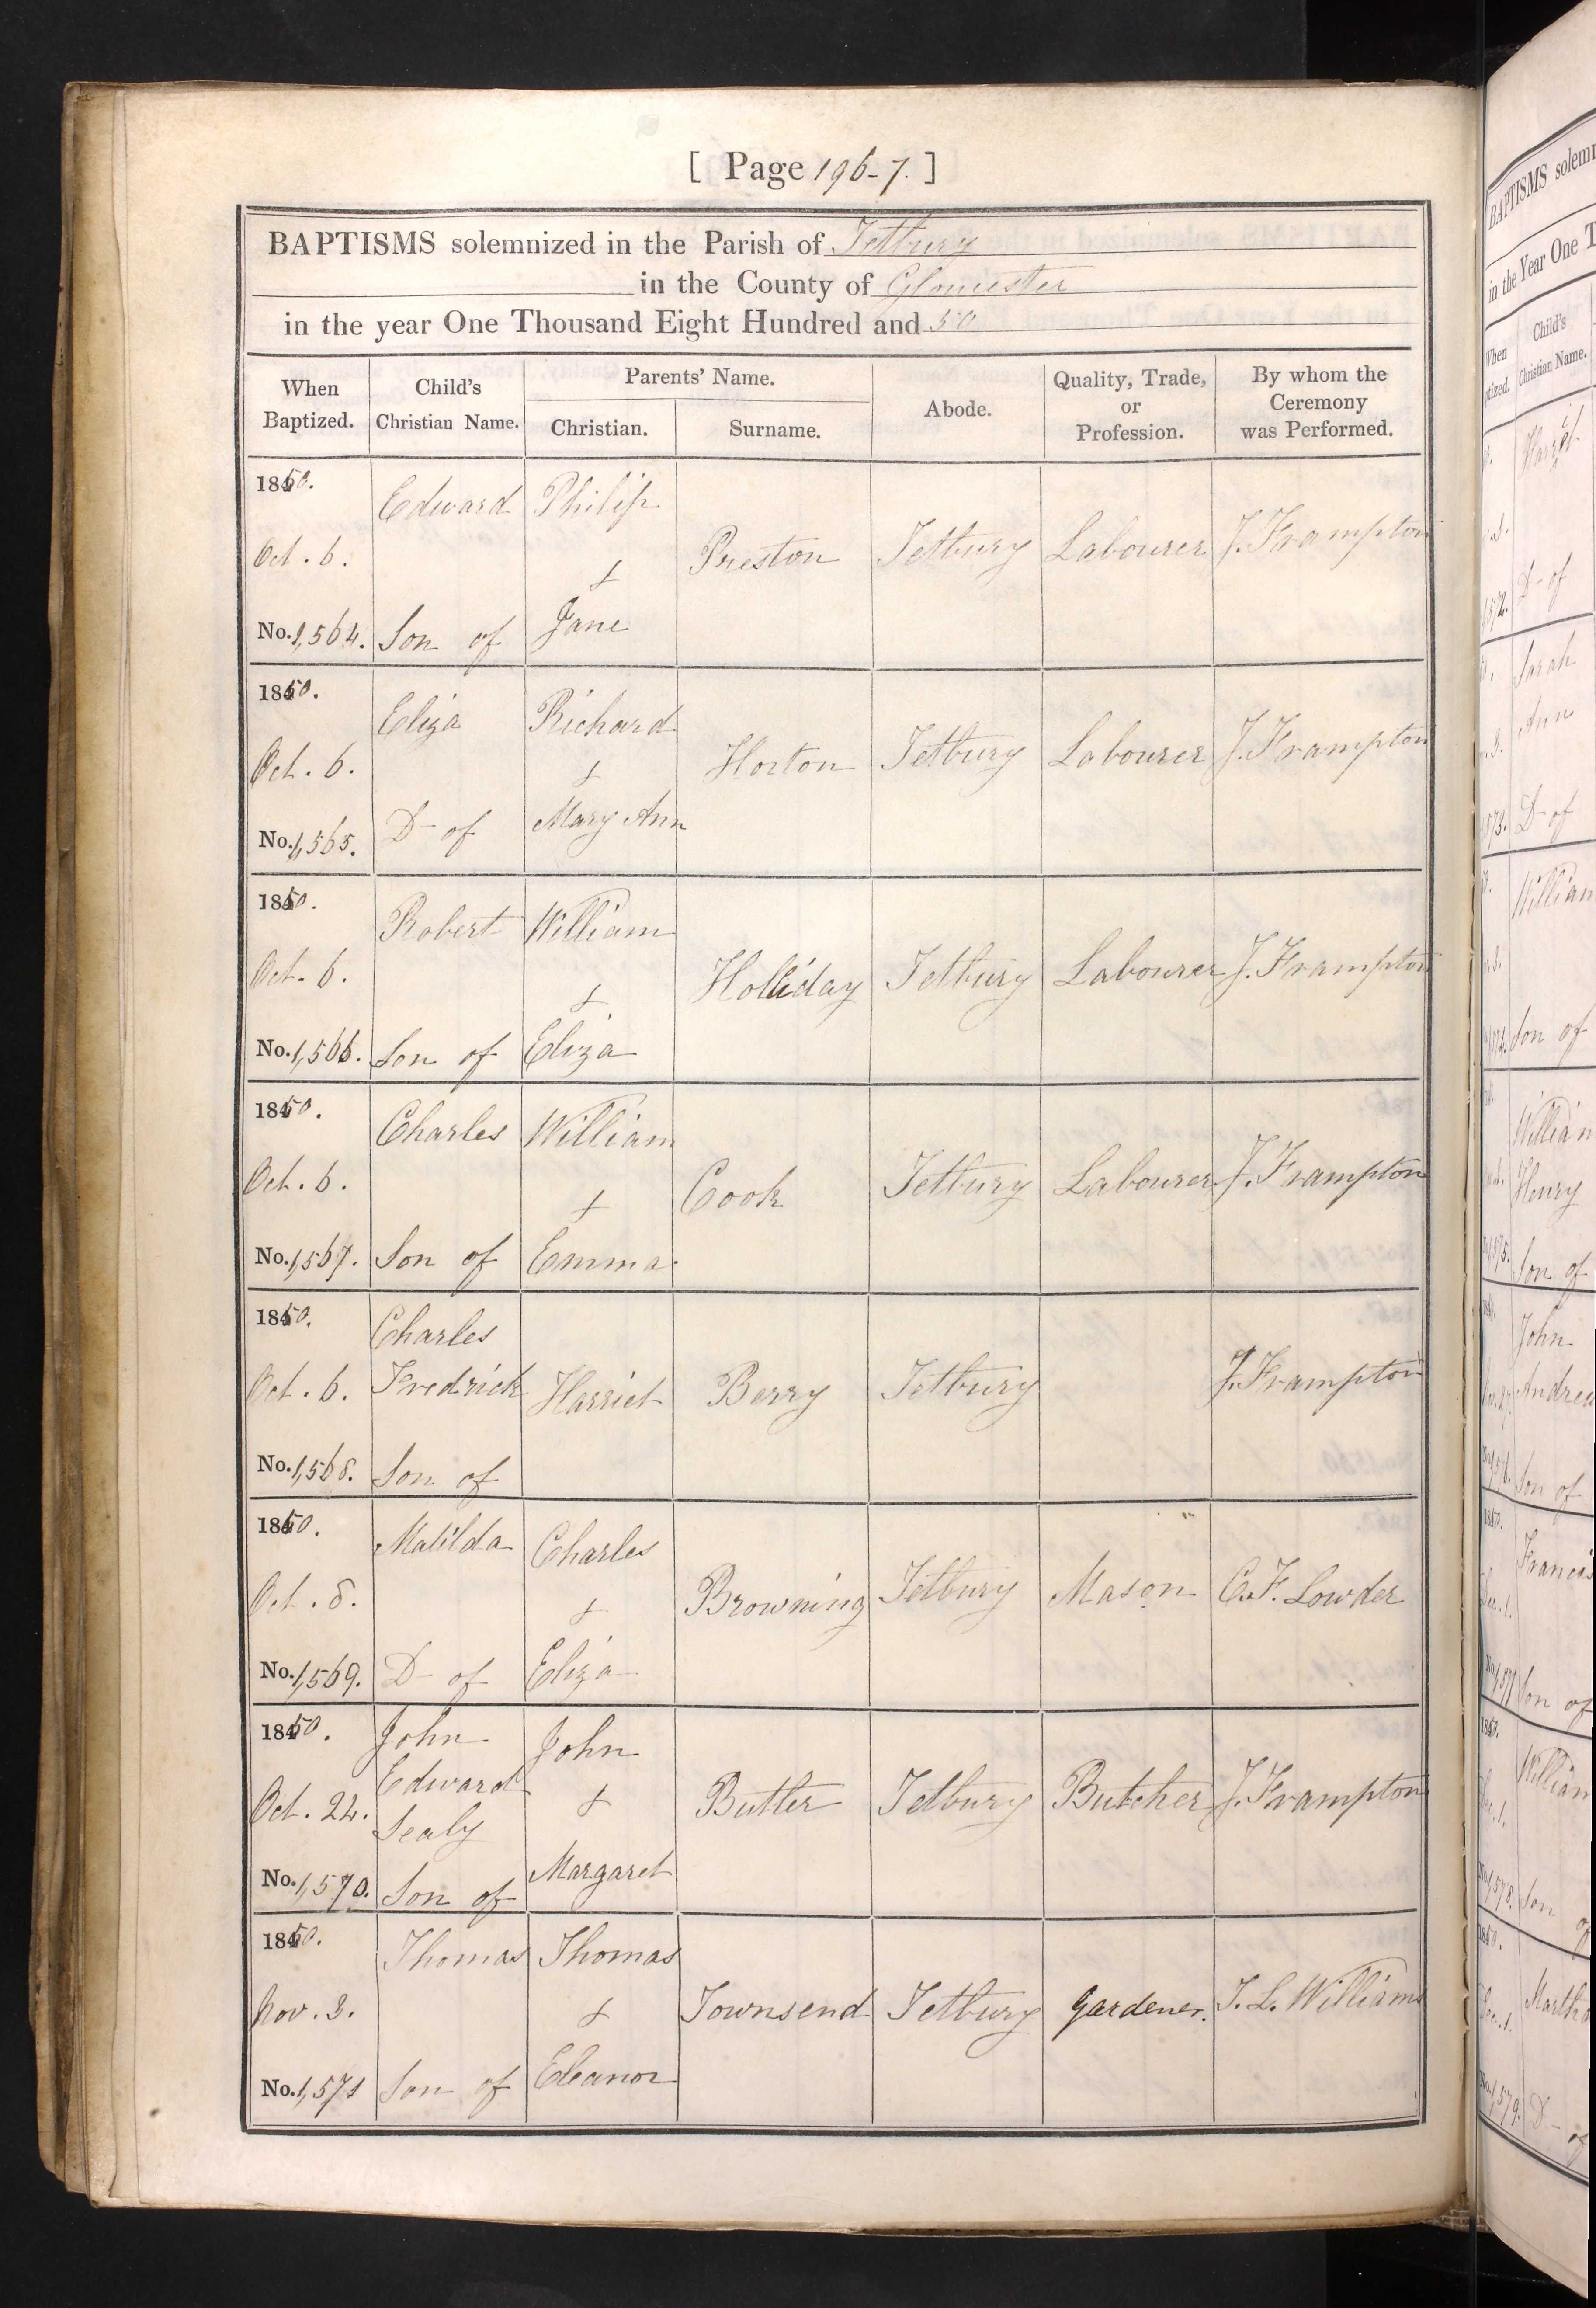 [ Page 196-7. ]
BAPTISMS solemnized in the Parish of Tetbury
in the County of Gloucester
in the year One Thousand Eight Hundred and 50
When Baptized. Child's Christian Name. Parents' Name. Christian. Surname. Abode. Quality, Trade, or Profession. By whom the Ceremony was Performed.
1850.
Edward Philip
Oct. 6. & Preston Tetbury Labourer J. Frampton
No. 1,564. Son of Jane
1850.
Eliza Richard
Oct. 6. & Horton Tetbury Labourer J. Frampton
No. 1,565. D- of Mary Ann
1850.
Robert William
Oct. 6. & Holliday Tetbury Labourer J. Frampton
No. 1,566. Son of Eliza
1850.
Charles William
Oct. 6. & Cook Tetbury Labourer J. Frampton
No. 1,567. Son of Emma.
1850. Charles
Oct. 6. Fredrick Harriet Berry Tetbury J. Frampton
No. 1,568. Son of
1850.
Matilda Charles
Oct. 8. & Browning Tetbury Mason C.F. Lowder
No. 1,569. D- of Eliza
1850. John John
Edward
Oct. 24. Sealy & Butler Tetbury Butcher J. Frampton
No. 1,570. Son of Margaret
1850.
Thomas Thomas
Nov. 3. & Townsend Tetbury Gardener. T. L. Williams
No. 1,571 Son of Eleanor
BAPTISMS solemn
in the Year One T
Child's
Christian Name.
D- of
Sarah
Ann
D- of
William
Son of
William
Henry
Son of
John
Son of
Francis
Son of
William
Son
Martha
D- of